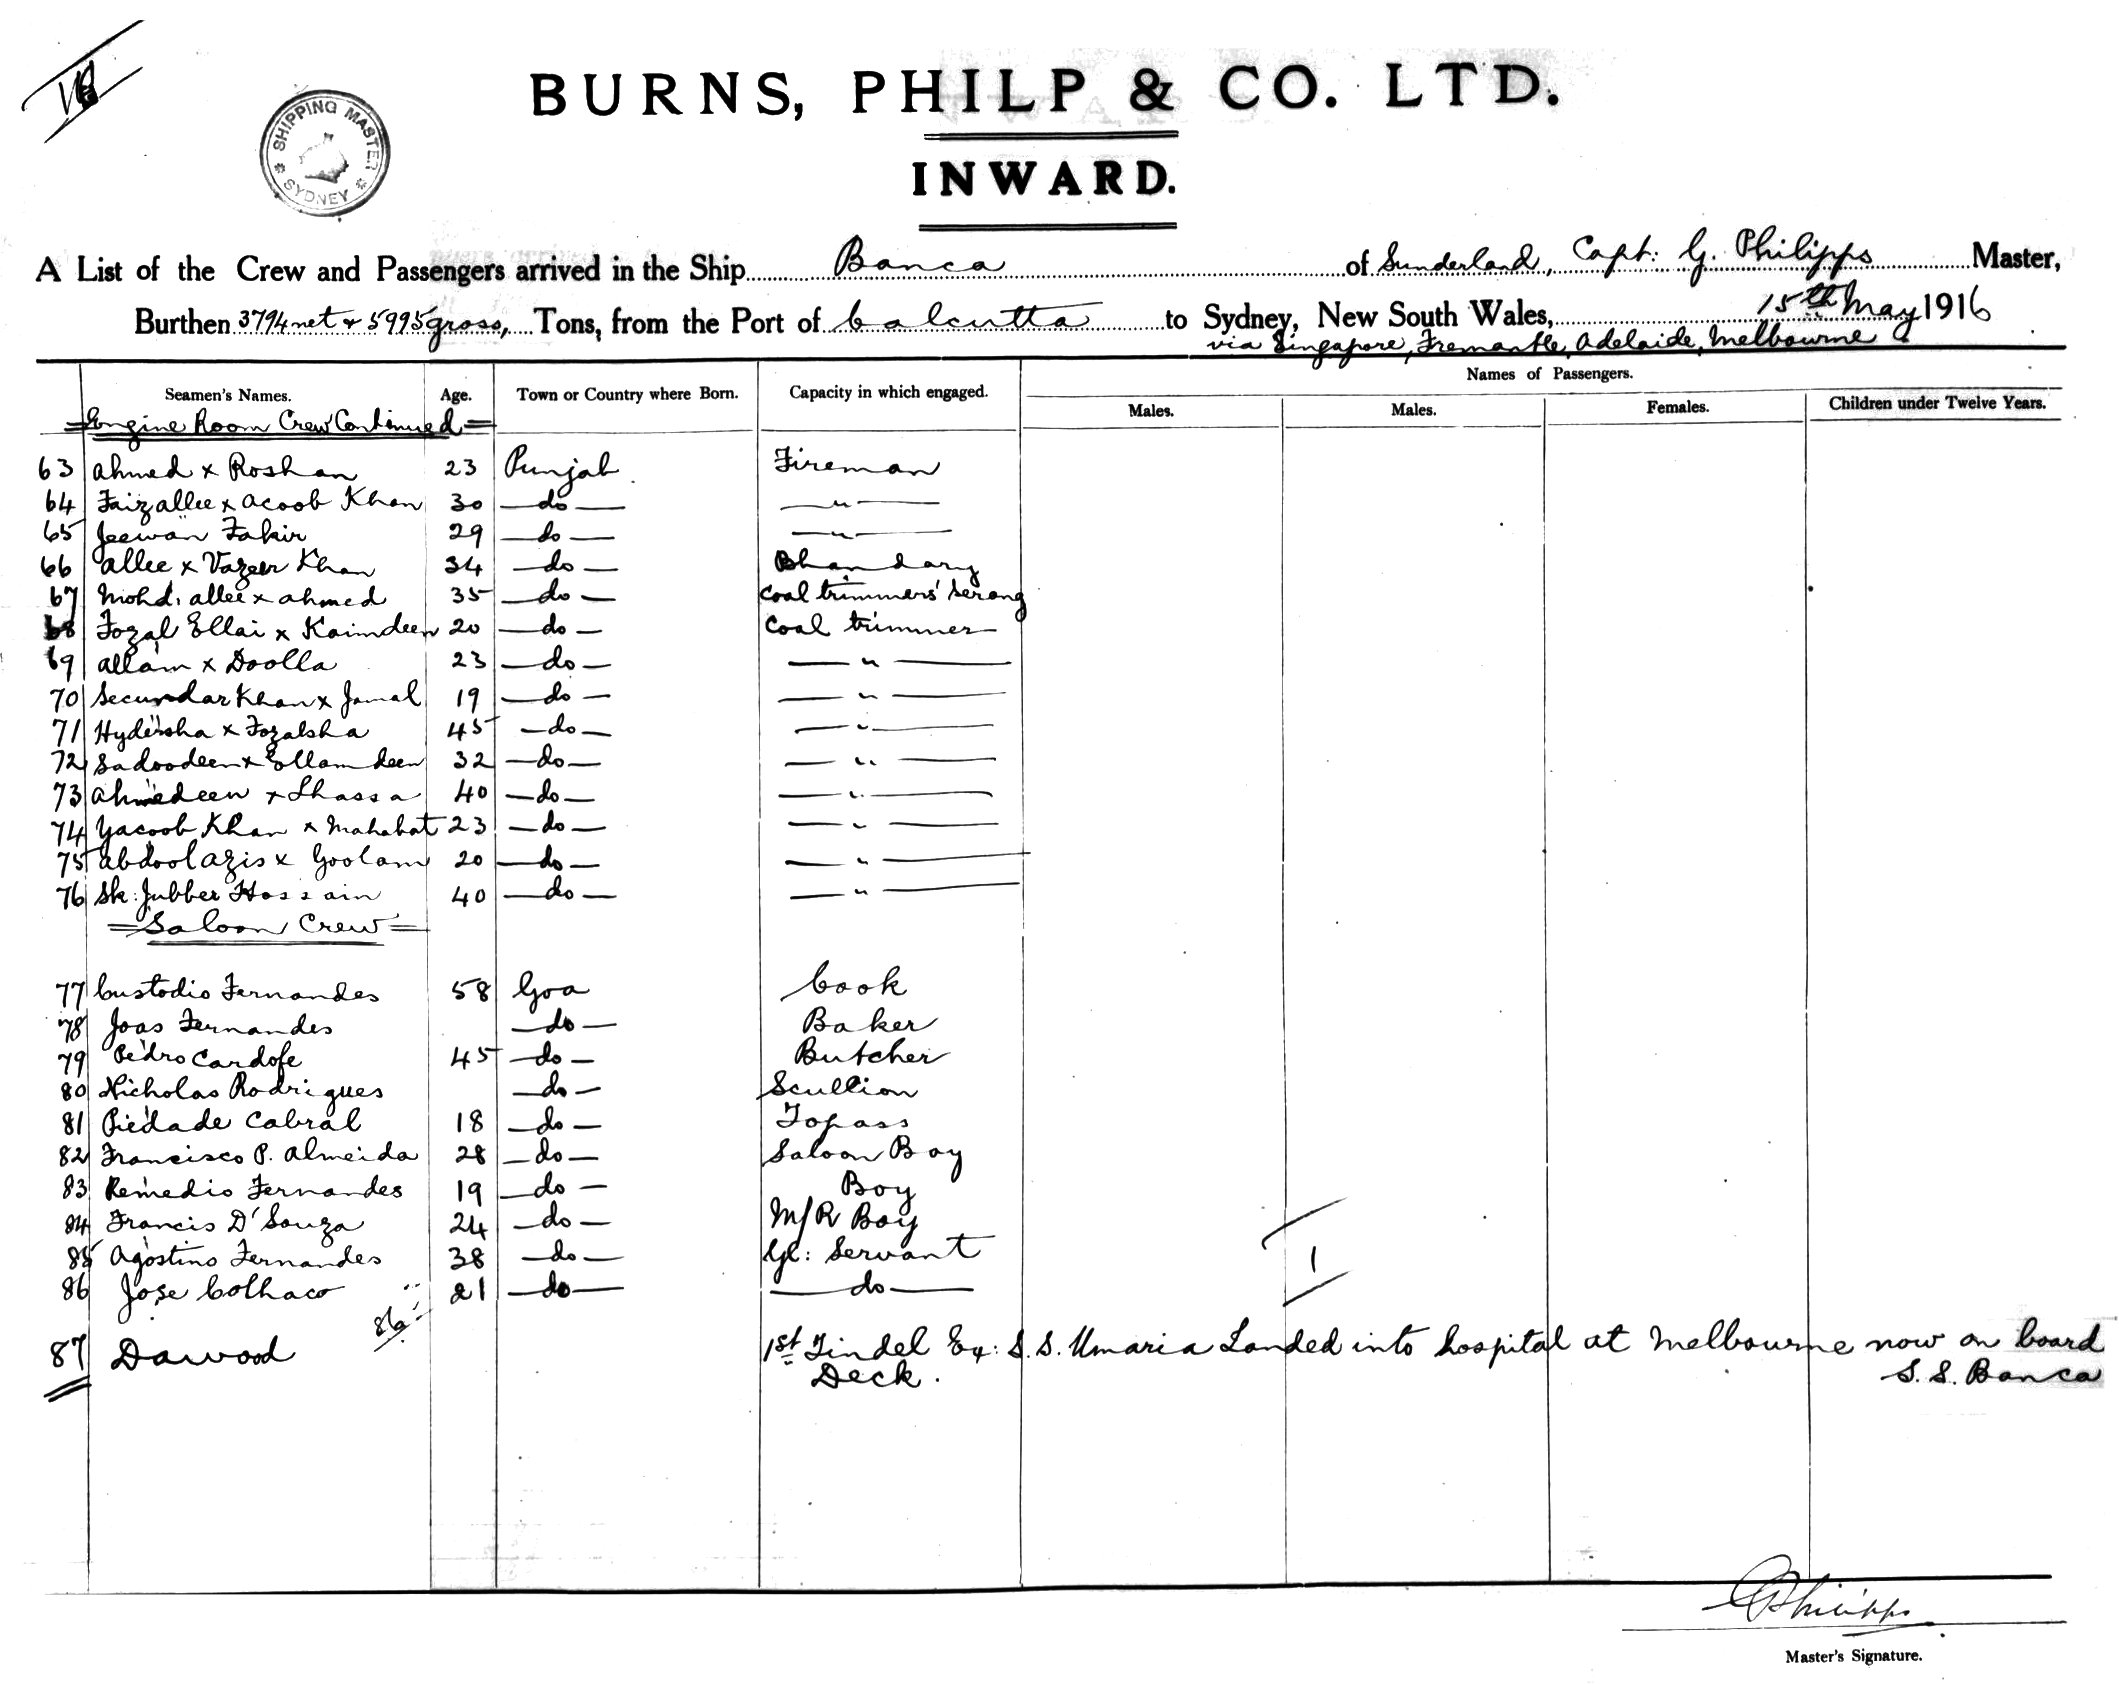 SHIPPING MASTER
SYDNEY
BURNS, PHILP & CO. LTD.
INWARD.
A List of the Crew and Passengers arrived in the Ship Banca of Sunderland, Capt: G. Philipps Master,
Burthen 3794 net & 5995 gross, Tons, from the Port of Calcutta to Sydney, New South Wales, 15th May 1916
via Singapore, Fremantle, Adelaide, Melbourne
Names of Passengers.
Seamen's Names. Age. Town or Country where Born. Capacity in which engaged. Males. Males. Females. Children under Twelve Years.
=Engine Room Crew Continued=
63 Ahmed x Roshan 23 Punjab Fireman
64 Faizallee x Acoob Khan 30 —do— —"—
65 Jeewan Fakir 29 —do— —"—
66 Allee x Vazeer Khan 34 —do— Bhandary
67 Mohd. Allee x Ahmed 35 —do— Coal trimmers' Serang
68 Fozal Ellai x Kaimdeen 20 —do— Coal trimmer
69 Allam x Doolla 23 —do— —"—
70 Secundar Khan x Jamal 19 —do— —"—
71 Hydersha x Fozalsha 45 —do— —"—
72 Sadoodeen x Ellamdeen 32 —do— —"—
73 Ahmedeen x Lhassa 40 —do— —"—
74 Yacoob Khan x Mahabat 23 —do— —"—
75 Abdool Azis x Goolam 20 —do— —"—
76 Sk: Jubber Hossain 40 —do— —"—
=Saloon Crew=
77 Custodio Fernandes 58 Goa Cook
78 Joas Fernandes —do— Baker
79 Pedro Cardofe 45 —do— Butcher
80 Nicholas Rodrigues —do— Scullion
81 Piedade Cabral 18 —do— Topass
82 Francisco P. Almeida 28 —do— Saloon Boy
83 Remedio Fernandes 19 —do— Boy
84 Francis D'Souza 24 —do— M/R Boy
85 Agostino Fernandes 38 —do— Gl: Servant
86 Jose Colhaco 21 —do— —do—
86
87 Dawood 1st Tindel Ex: S.S. Umaria Landed into hospital at Melbourne now on board
Deck. S.S. Banca
1
G Philipps
Master's Signature.